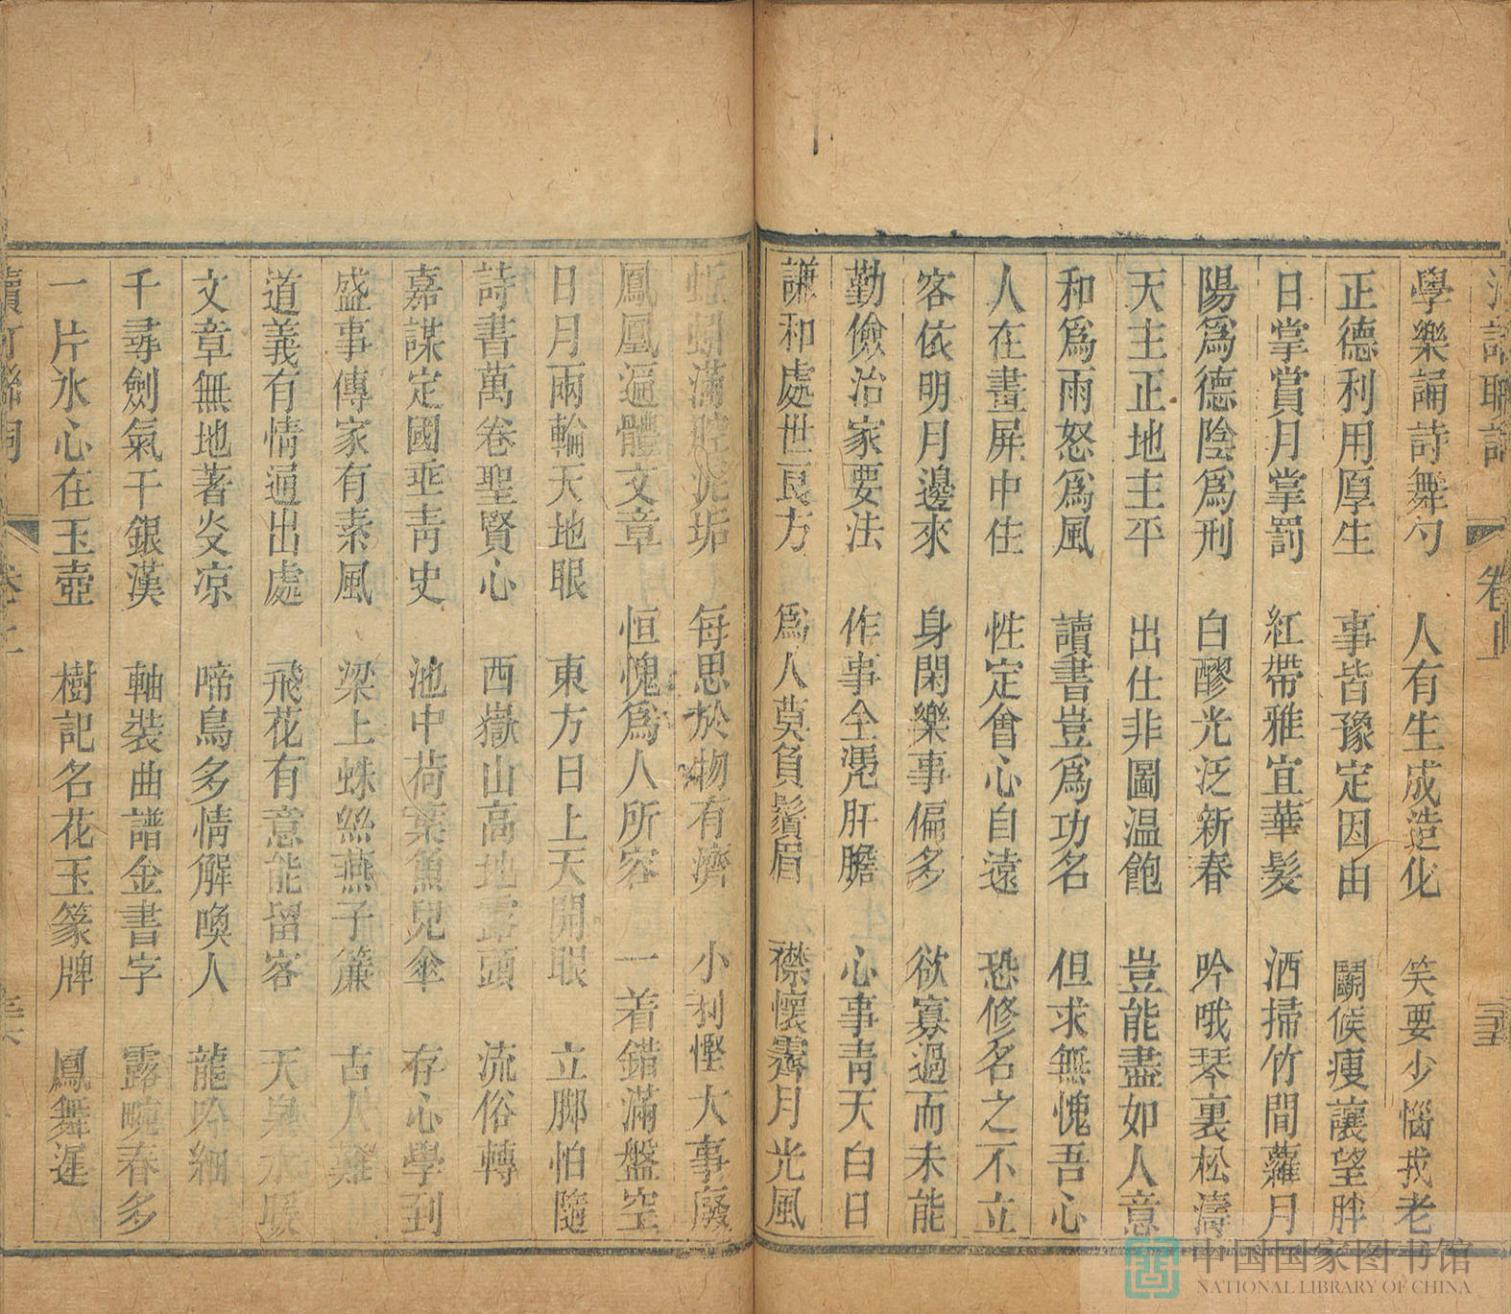 學樂誦詩舞勺　人有生成造化　笑要少惱我老
正德利用厚生　事皆豫定因由　鬭候瘦讓望胖
日掌賞月掌罰　紅帶雅宜華髮　洒掃竹間蘿月
陽爲德陰爲刑　白醪光泛新春　吟哦琴裏松濤
天主正地主平　出仕非圖温飽　豈能盡如人意
和爲雨怒爲風　讀書豈爲功名　但求無愧吾心
人在畫屏中住　性定會心自遠　恐修名之不立
客依明月邊來　身閑樂事偏多　欲寡過而未能
勤儉治家要法　作事全凴肝膽　心事青天白日
謙和處世良方　爲人莫負鬚眉　襟懷霽月光風
蚯蚓滿腔泥垢　每思於物有濟　小利慳大事廢
鳳凰遍體文章　恒愧爲人所容　一着錯滿盤空
日月兩輪天地眼　東方日上天開眼　立脚怕隨
詩書萬卷聖賢心　西嶽山高地露頭　流俗轉
嘉謀定國垂青史　池中荷葉魚兒傘　存心學到
盛事傳家有素風　梁上蛛絲燕子簾　古人難
道義有情通出處　飛花有意能留客　天與水暖
文章無地著炎凉　啼鳥多情解喚人　龍吟細
千尋劍氣干銀漢　軸裝曲譜金書字　露畹春多
一片氷心在玉壺　樹記名花玉篆牌　鳳舞遲